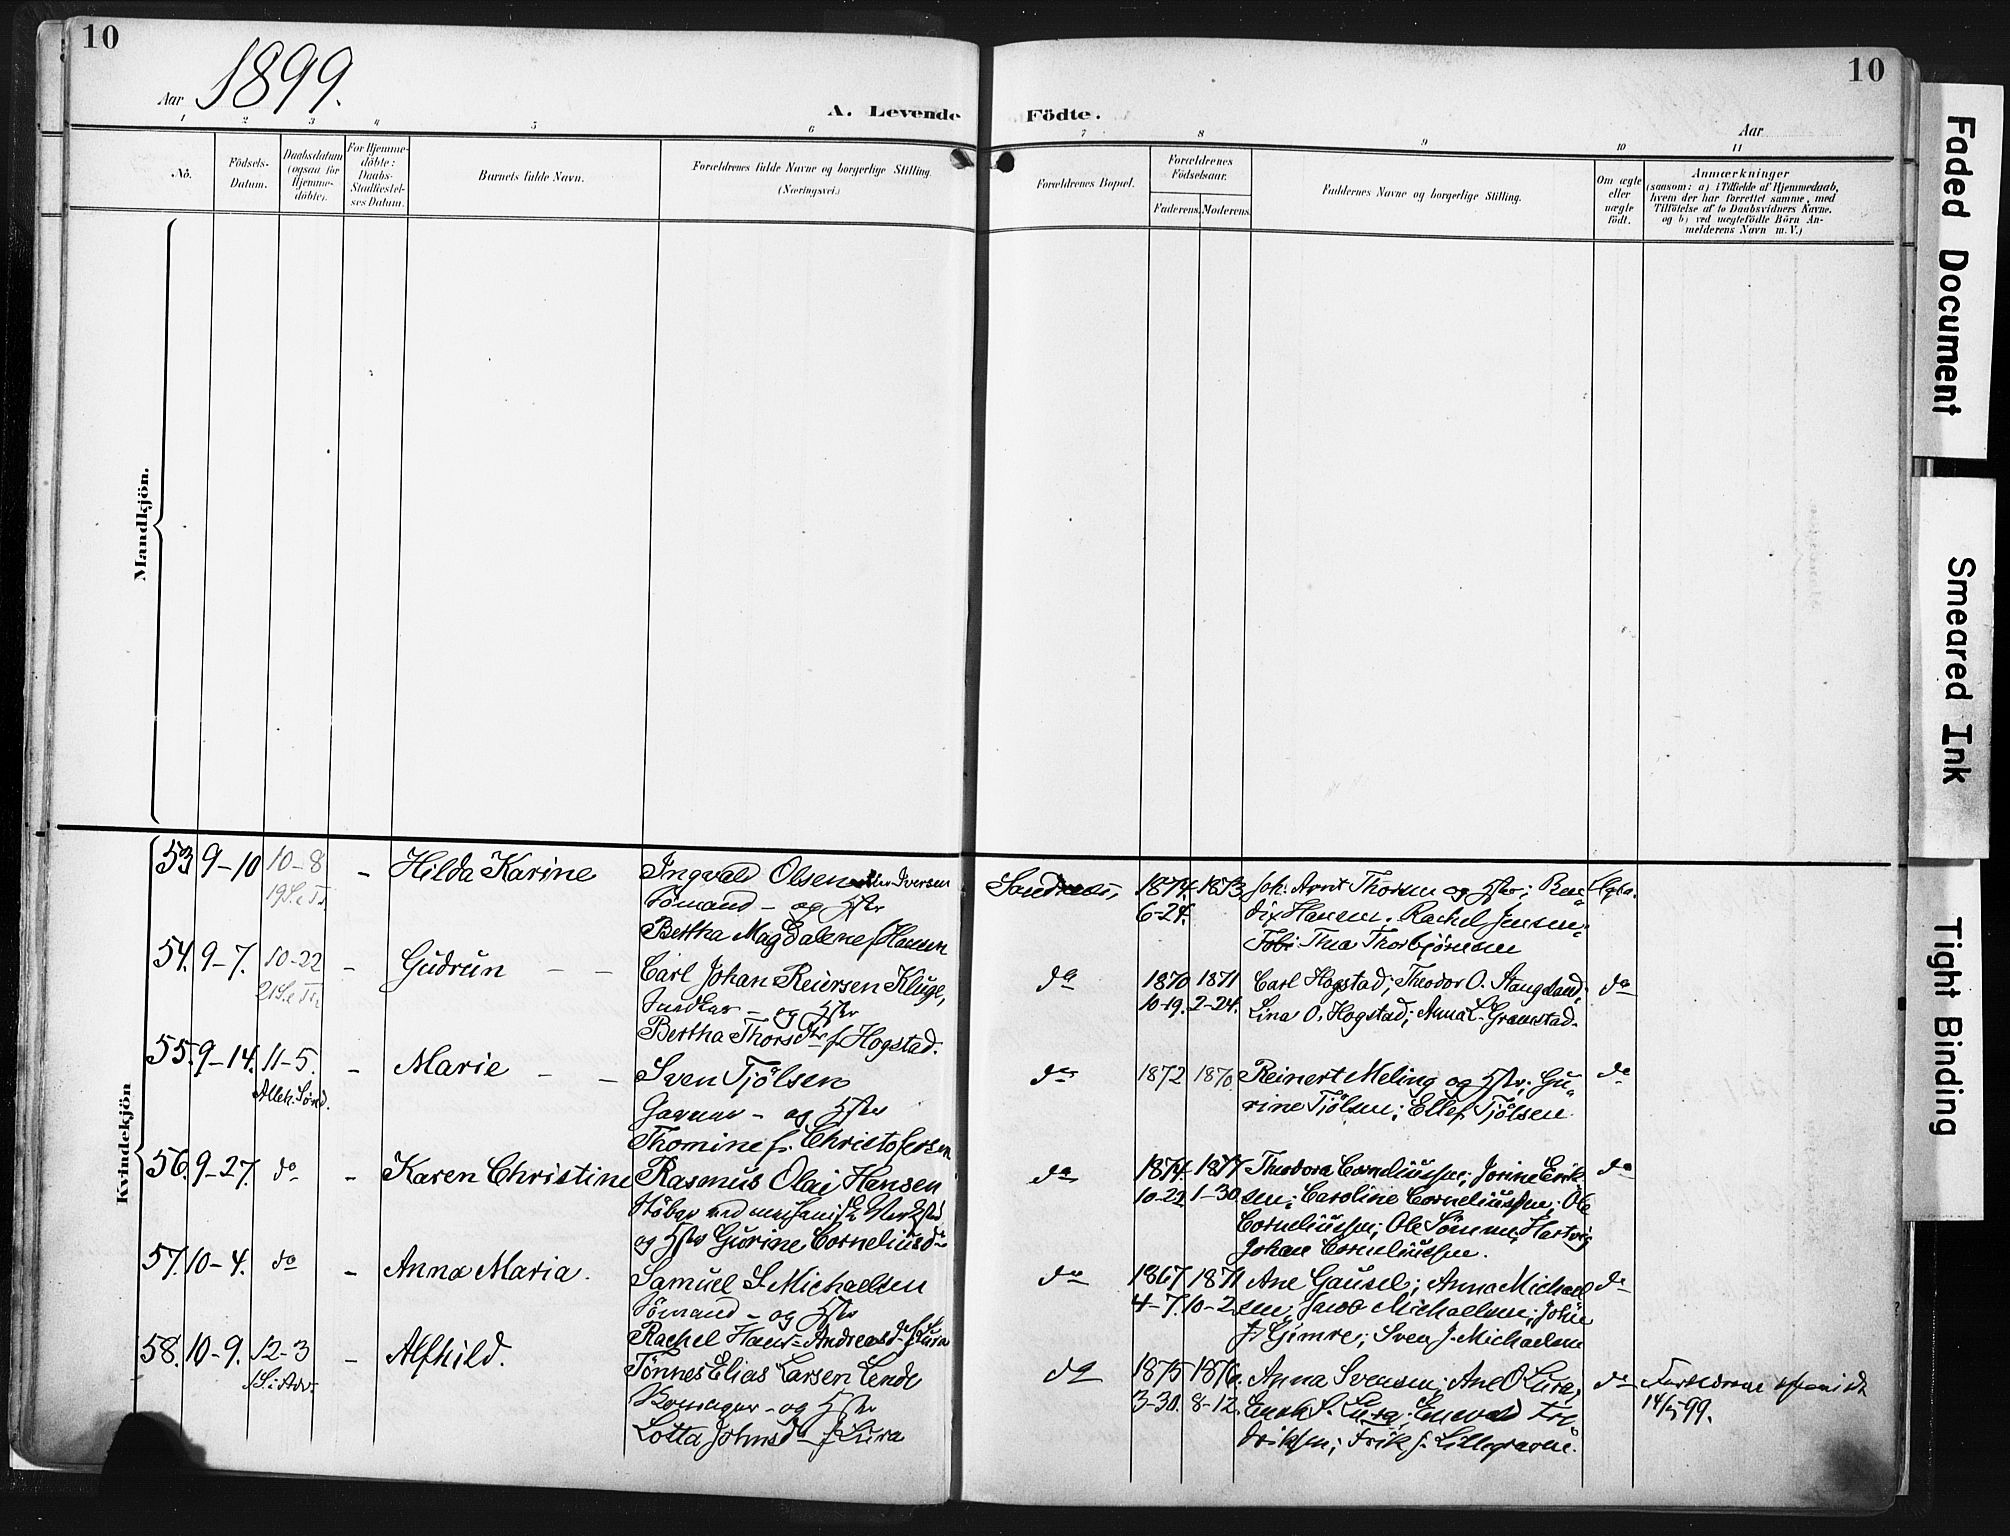 10
1899.
Aar
A. Levende Födte.
10
Aar
1 2 3 4 5 6 7 8 9 10 11
No.
Födsels-
Datum.
Daabsdatum
(ogsaa for
Hjemme-
döbte).
For Hjemme-
döbte:
Daabs-
Stadfæstel-
ses Datum.
Barnets fulde Navn.
Forældrenes fulde Navne og borgerlige Stilling.
(Næringsvei.)
Forældrenes Bopæl.
Forældrenes
Födselsaar.
Faderens. Moderens.
Faddernes Navne og borgerlige Stilling.
Om ægte
eller
uægte
födt.
Anmærkninger
(saasom: a) i Tilfælde af Hjemmedaab,
hvem der har forrettet samme, med
Tilföielse af to Daabsvidners Navne.
og b) ved uægtefödte Börn An-
melderens Navn m. V.)
Mandkjön.
Kvindekjön
53 9-10 10-8 - Hilda Karine
Ingvald Olsen Iversen
Sømand - og Hstr
Bertha Magdalene f Hansen
Sandnes, 1874. 1873 Joh: Arnt Thorsen og Hstr; Ben-
6-24. dix Hansen. Rachel Jensen;
Tobi Thea Thorbjørnsen
54. 9-7. 10-22 - Gudrun - -
Carl Johan Reiersen Kluge,
Snedker - og Hstr
Bertha Thorsdtr f Hogstad.
do 1870 1871 Carl Hogstad; Theodor O. Stangeland; do
10-19. 2-24. Lina O. Hogstad; Anna L. Gramstad.
55. 9-14. 11-5. - Marie - -
Alleh. Sønd.
Sven Tjölsen
Garver - og Hstr
Thomine f. Christofersen
do 1872 1870 Reinert Meling og Hstr; Gu- do
rine Tjölsen; Ellef Tjölsen.
56. 9-27. do - Karen Christine
Rasmus Olai Hansen
Støber ved
og Hstr Gurine Corneliusdtr
do 1874. 1877 Theodora Corneliussen; Jorine Erik- do
10-22 1-30 sen; Caroline Corneliussen; Ole
Corneliussen; Ole Sömme, Hartvig
Johan Corneliussen.
57. 10-4. do - Anna Maria.
Samuel S. Michaelsen
Sømand - og Hstr
Rachel Hans-Andreasdtr f Lura
do 1867 1871 Ane Gausel; Anna Michael- do
4-7. 10-2. sen; Jacob Michaelsen; John
J. Gimre; Sven J. Michaelsen
58. 10-9. 12-3 - Alfhild.
1 S. i Adv.
Tönnes Elias Larsen Lende
og Hstr
Lotta Johnsdtr f Lura
do 1875 1876. Anna Svensen; Ane O Lura; do
3-30. 8-12. Enok S. Lura; Enevald Fre-
driksen; Erik J. Lillegraven.
Forældrene
14/5 99.
Faded Document
Smeared Ink
Tight Binding